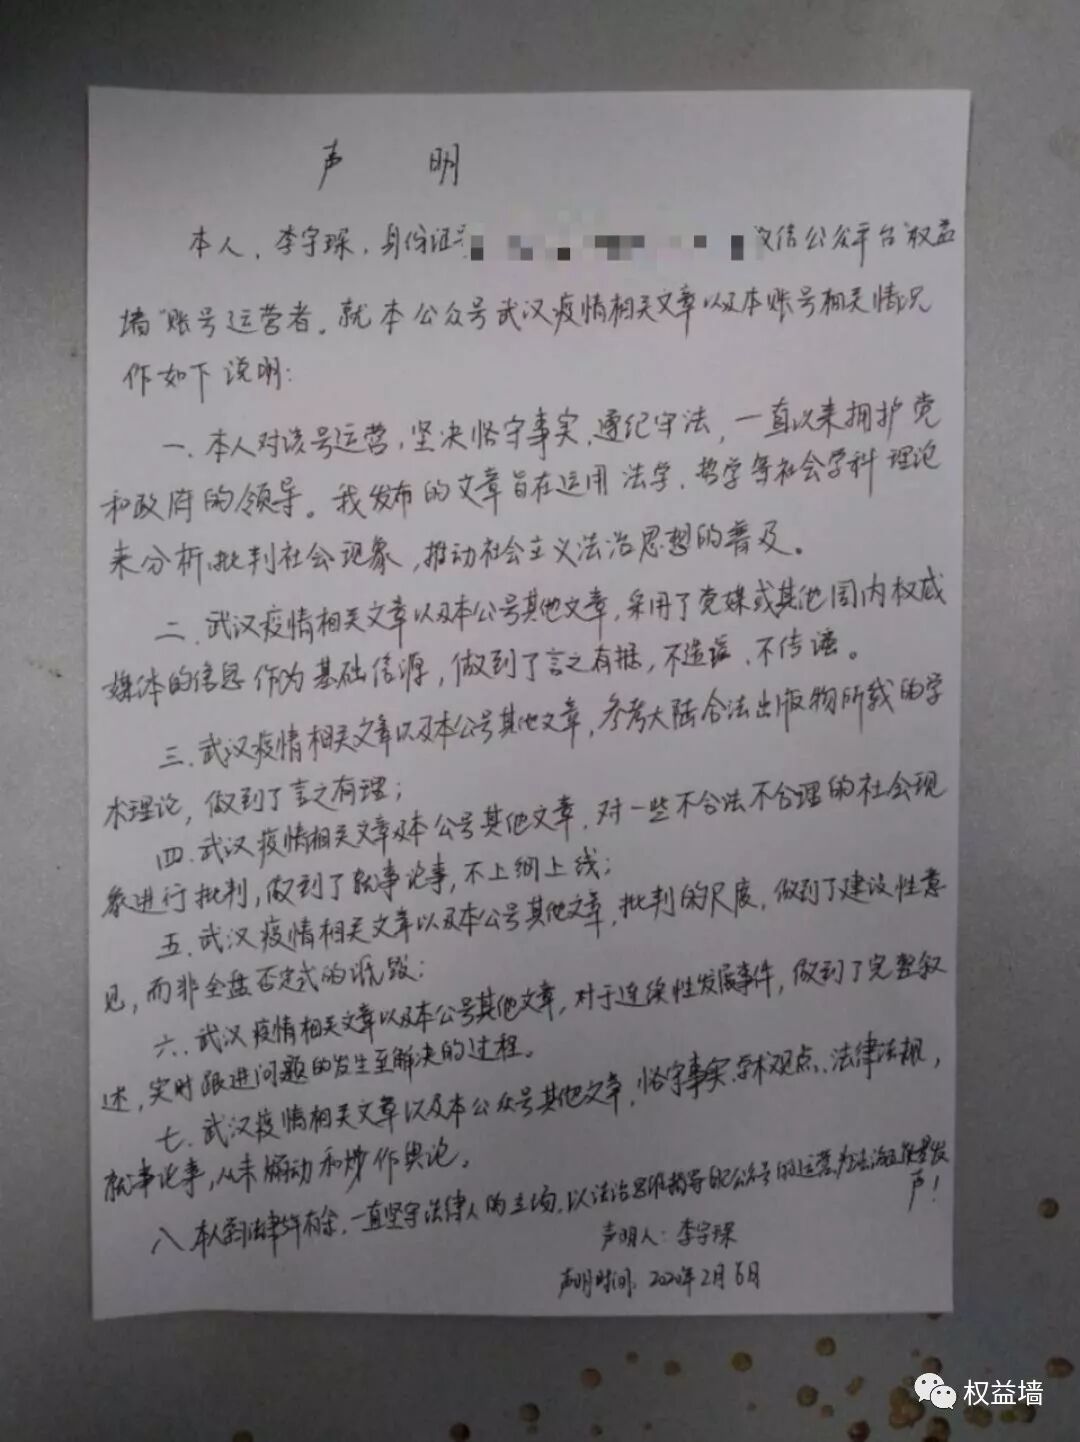 声 明
本人，李宇琛，身份证号 微信公众平台“权益
墙”账号运营者。就本公众号武汉疫情相关文章以及本账号相关情况
作如下说明：
一、本人对该号运营，坚决恪守事实，遵纪守法，一直以来拥护党
和政府的领导。我发布的文章旨在运用法学、哲学等社会学科理论
来分析、批判社会现象，推动社会主义法治思想的普及。
二、武汉疫情相关文章以及本公号其他文章，采用了党媒或其他国内权威
媒体的信息作为基础信源，做到了言之有据，不造谣、不传谣。
三、武汉疫情相关文章以及本公号其他文章，参考大陆合法出版物所载的学
术理论，做到了言之有理；
四、武汉疫情相关文章及本公号其他文章，对一些不合法不合理的社会现
象进行批判，做到了就事论事，不上纲上线；
五、武汉疫情相关文章以及本公号其他文章，批判的尺度，做到了建设性意
见，而非全盘否定式的诋毁；
六、武汉疫情相关文章以及本公号其他文章，对于连续性发展事件，做到了完整叙
述，实时跟进问题的发生至解决的过程。
七、武汉疫情相关文章以及本公众号其他文章，恪守事实、学术观点、法律法规，
就事论事，从未煽动和炒作舆论。
八、本人学习法律5年有余，一直坚守法律人的立场，以法治思维指导的公众号的运营，为法治正能量发
声！
声明人：李宇琛
声明时间：2020年2月6日
权益墙